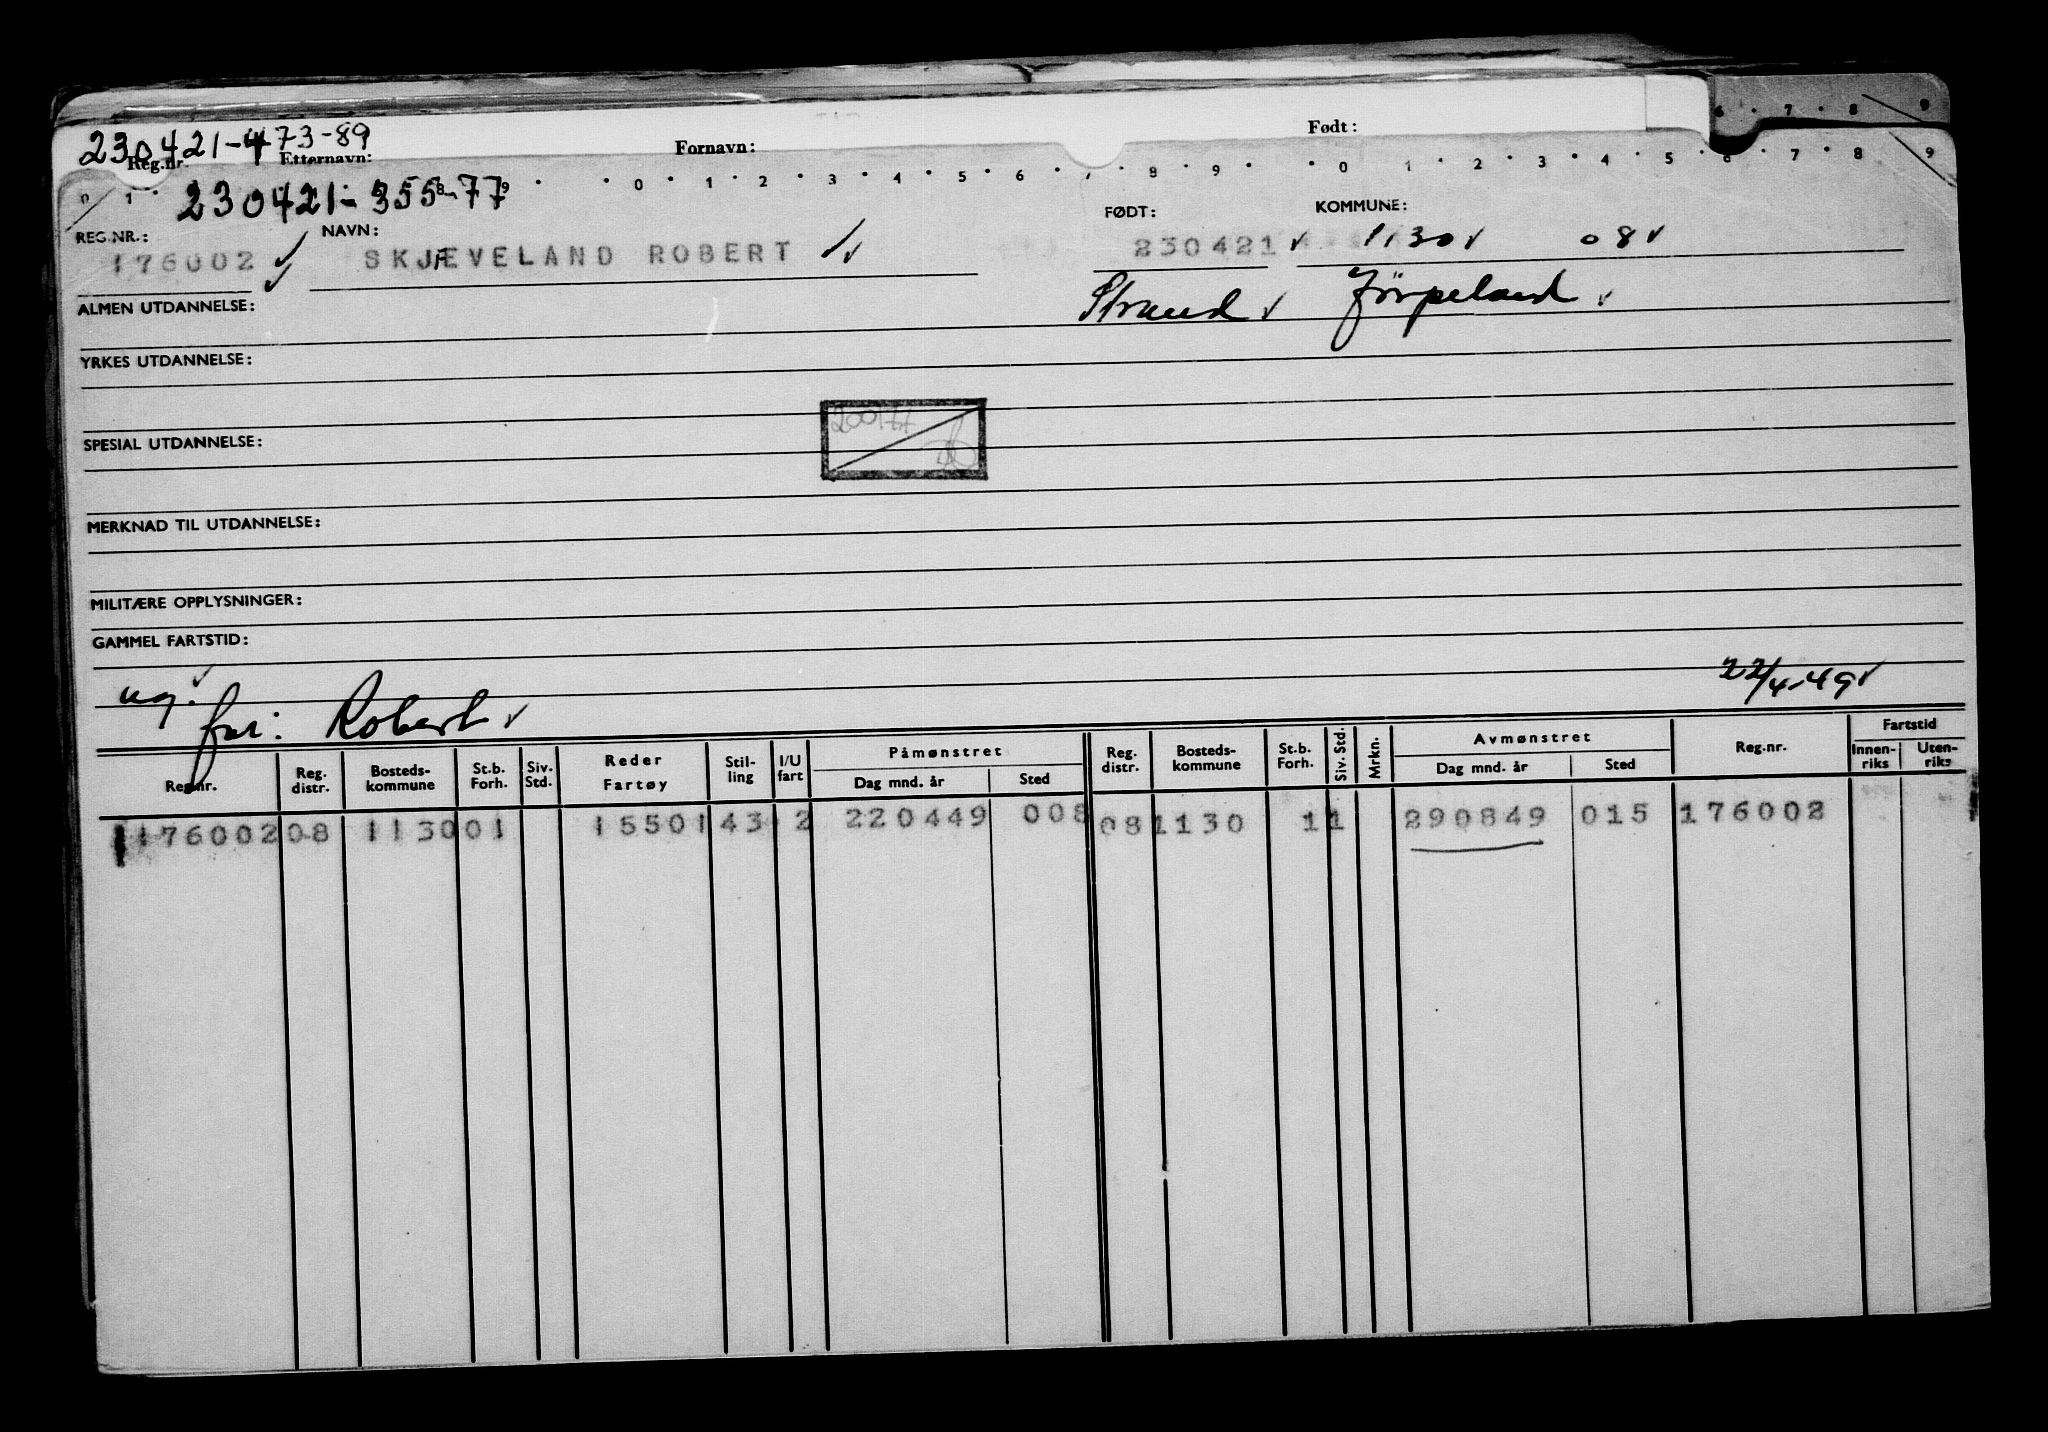 230421-473-89
Reg.nr. Etternavn: Fornavn: Født:
0 1 8 9 0 1 2 3 4 5 6 7 8 9 0 1 2 3 4 5 6 7 8 9
230421-355-77
REG.NR.: NAVN: FØDT: KOMMUNE:
176002 SKJÆVELAND ROBERT 230421 1130 08
ALMEN UTDANNELSE: Strand Jörpeland
YRKES UTDANNELSE:
200177
SPESIAL UTDANNELSE:
MERKNAD TIL UTDANNELSE:
MILITÆRE OPPLYSNINGER:
GAMMEL FARTSTID:
ug. 22/4-49
far: Robert
Reg.nr. Reg. distr. Bosteds-kommune St.b. Forh. Siv. Std. Reder Fartøy Stil-ling I/U fart Påmønstret Dag mnd. år Sted Reg. distr. Bosteds-kommune St.b. Forh. Siv. Std. Mrkn. Avmønstret Dag mnd. år Sted Reg.nr. Fartstid Innen-riks Uten-riks
176002 08 1130 01 15501 43 2 220449 008 08 1130 1 1 290849 015 176002